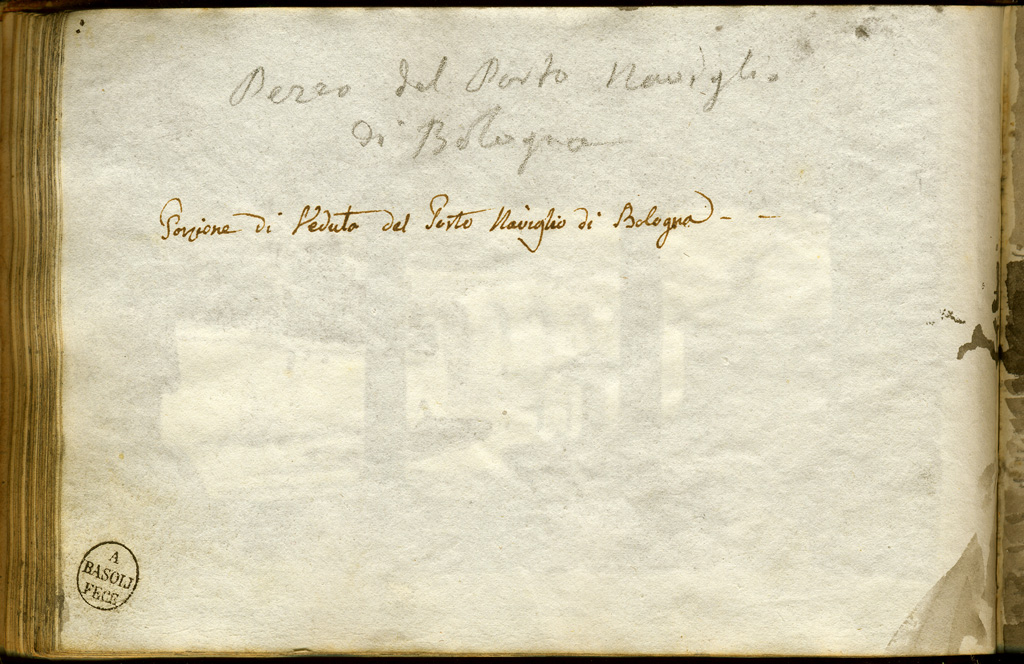 Pezzo del Porto Naviglio
di Bologna
Porzione di Veduta del Porto Naviglio di Bologna - -
A
BASOLI
FECE